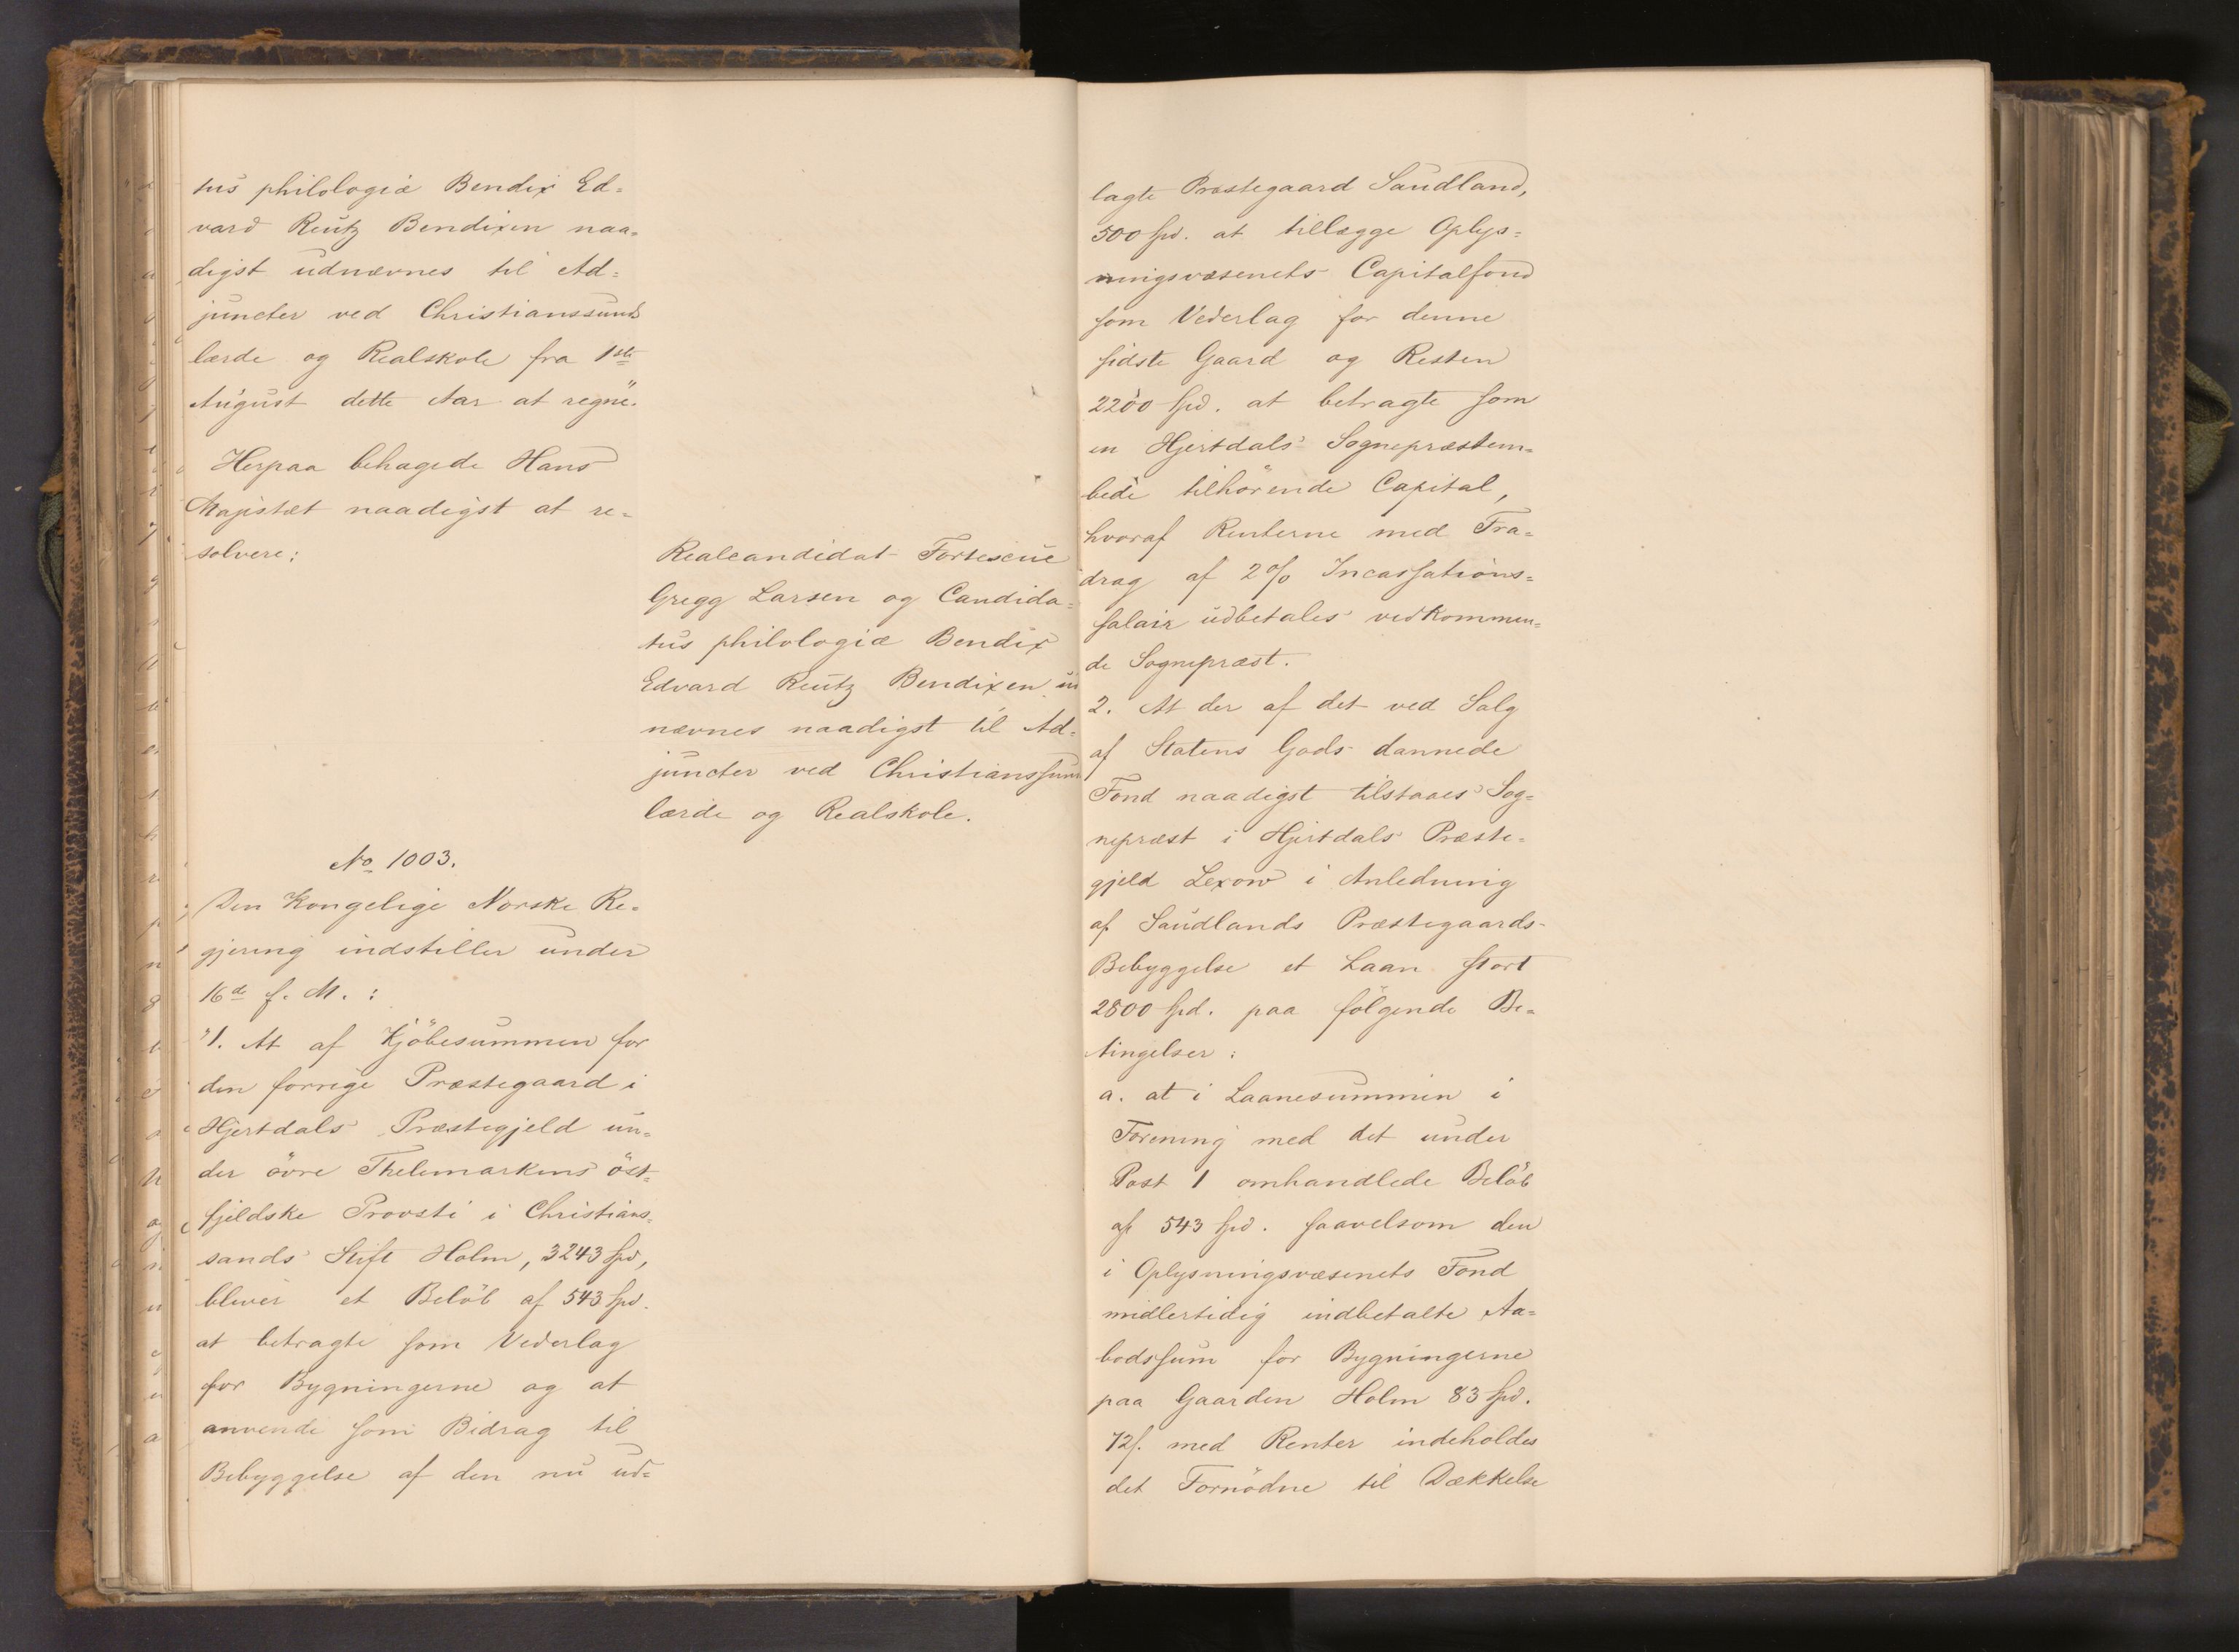 tus philologiæ Bendix Ed=
vard Reutz Bendixen naa=
digst udnævnes til Ad=
juncter ved Christianssunds
lærde og Realskole fra 1ste
August dette Aar at regne.
Herpaa behagede Hans
Majestæt naadigst at re=
solvere:
Realcandidat Fortescue
Gregg Larsen og Candida=
tus philologiæ Bendix
Edvard Reutz Bendixen ud
nævnes naadigst til Ad=
juncter ved Christianssunds
lærde og Realskole.
No 1003.
Den Kongelige Norske Re=
gjering indstiller under
16de f. M.:
"1. At af Kjöbesummen for
den forrige Præstegaard i
Hjertdals Præstegjeld un=
der övre Thelemarkens öst=
fjeldske Provsti i Christians=
sands Stift Holm, 3243 Spd,
bliver et Belöb af 543 Spd.
at betragte som Vederlag
for Bygningerne og at
anvende som Bidrag til
Bebyggelse af den nu ud=
lagte Præstegaard Saudland,
500 Spd. at tillægge Oplys=
ningsvæsenets Capitalfond
som Vederlag for denne
sidste Gaard og Resten
2200 Spd. at betragte som
en Hjertdals Sognepræstem=
bede tilhörende Capital,
hvoraf Renterne med Fra=
drag af 2% Incassations=
salair udbetales vedkommen=
de Sognepræst.
2. At der af det ved Salg
af Statens Gods dannede
Fond naadigst tilstaaes Sog=
nepræst i Hjertdals Præste=
gjeld Lexow i Anledning
af Saudlands Præstegaards=
Bebyggelse et Laan stort
2800 Spd. paa fölgende Be=
tingelser:
a. at i Laanesummen i
Forening med det under
Post 1 omhandlede Belöb
af 543 Spd. saavelsom den
i Oplysningsvæsenets Fond
midlertidig indbetalte Aa=
bodssum for Bygningerne
paa Gaarden Holm 83 Spd.
72 s. med Renter indeholdes
det Fornödne til Dækkelse